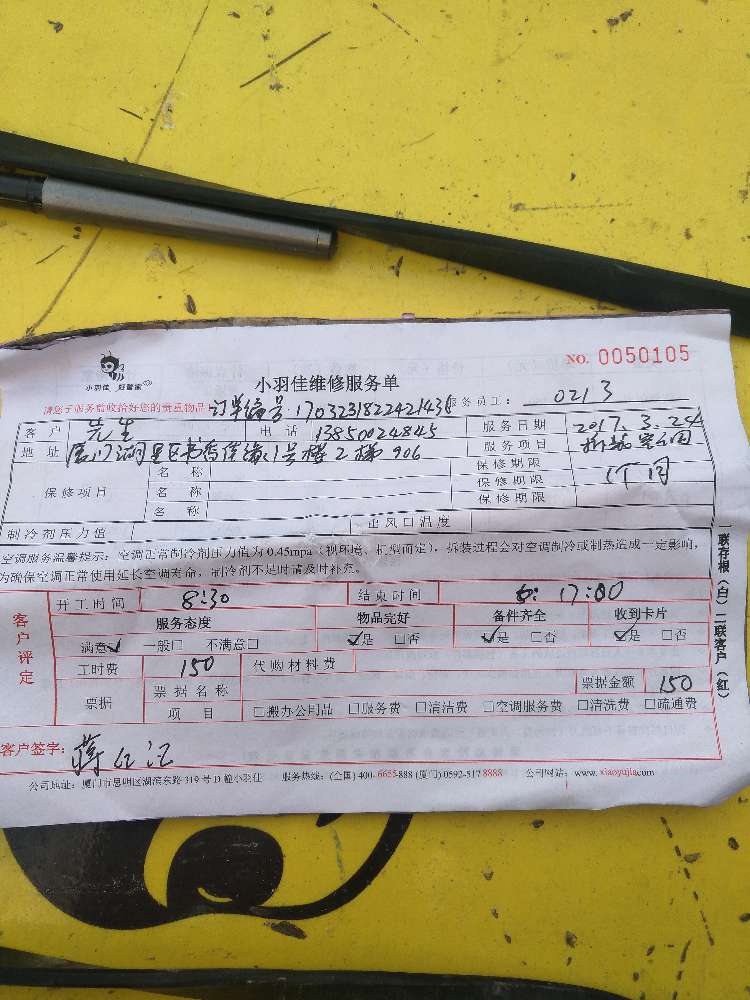 NO. 0050105
小羽佳 好管家
小羽佳维修服务单
请您于服务前收拾好您的贵重物品 订单编号:1703231822421436 服务员工: 0213
客户 先生 电话 13850024845 服务日期 2017.3.24
地址 厦门湖里区书香佳缘1号楼2梯906 服务项目 拆装空调
保修项目 名称 保修期限 1个月
名称 保修期限
名称 保修期限
制冷剂压力值 出风口温度
空调服务温馨提示:空调正常制冷剂压力值为0.45mpa(视环境、机型而定),拆装过程会对空调制冷或制热造成一定影响,
为确保空调正常使用延长空调寿命,制冷剂不足时请及时补充。
客户评定
开工时间 8:30 结束时间 17:00
服务态度 物品完好 备件齐全 收到卡片
满意✓ 一般□ 不满意□ ☑是 □否 ☑是 □否 ☑是 □否
工时费 150 代购材料费
票据 票据名称 票据金额 150
项目 □搬办公用品 □服务费 □清洁费 □空调服务费 □清洗费 □疏通费
客户签字:
公司地址:厦门市思明区湖滨东路319号D幢小羽佳 服务热线:(全国)400-6655-888 (厦门)0592-517 8888 公司网站:www.xiaoyujia.com
一联存根(白) 二联客户(红)